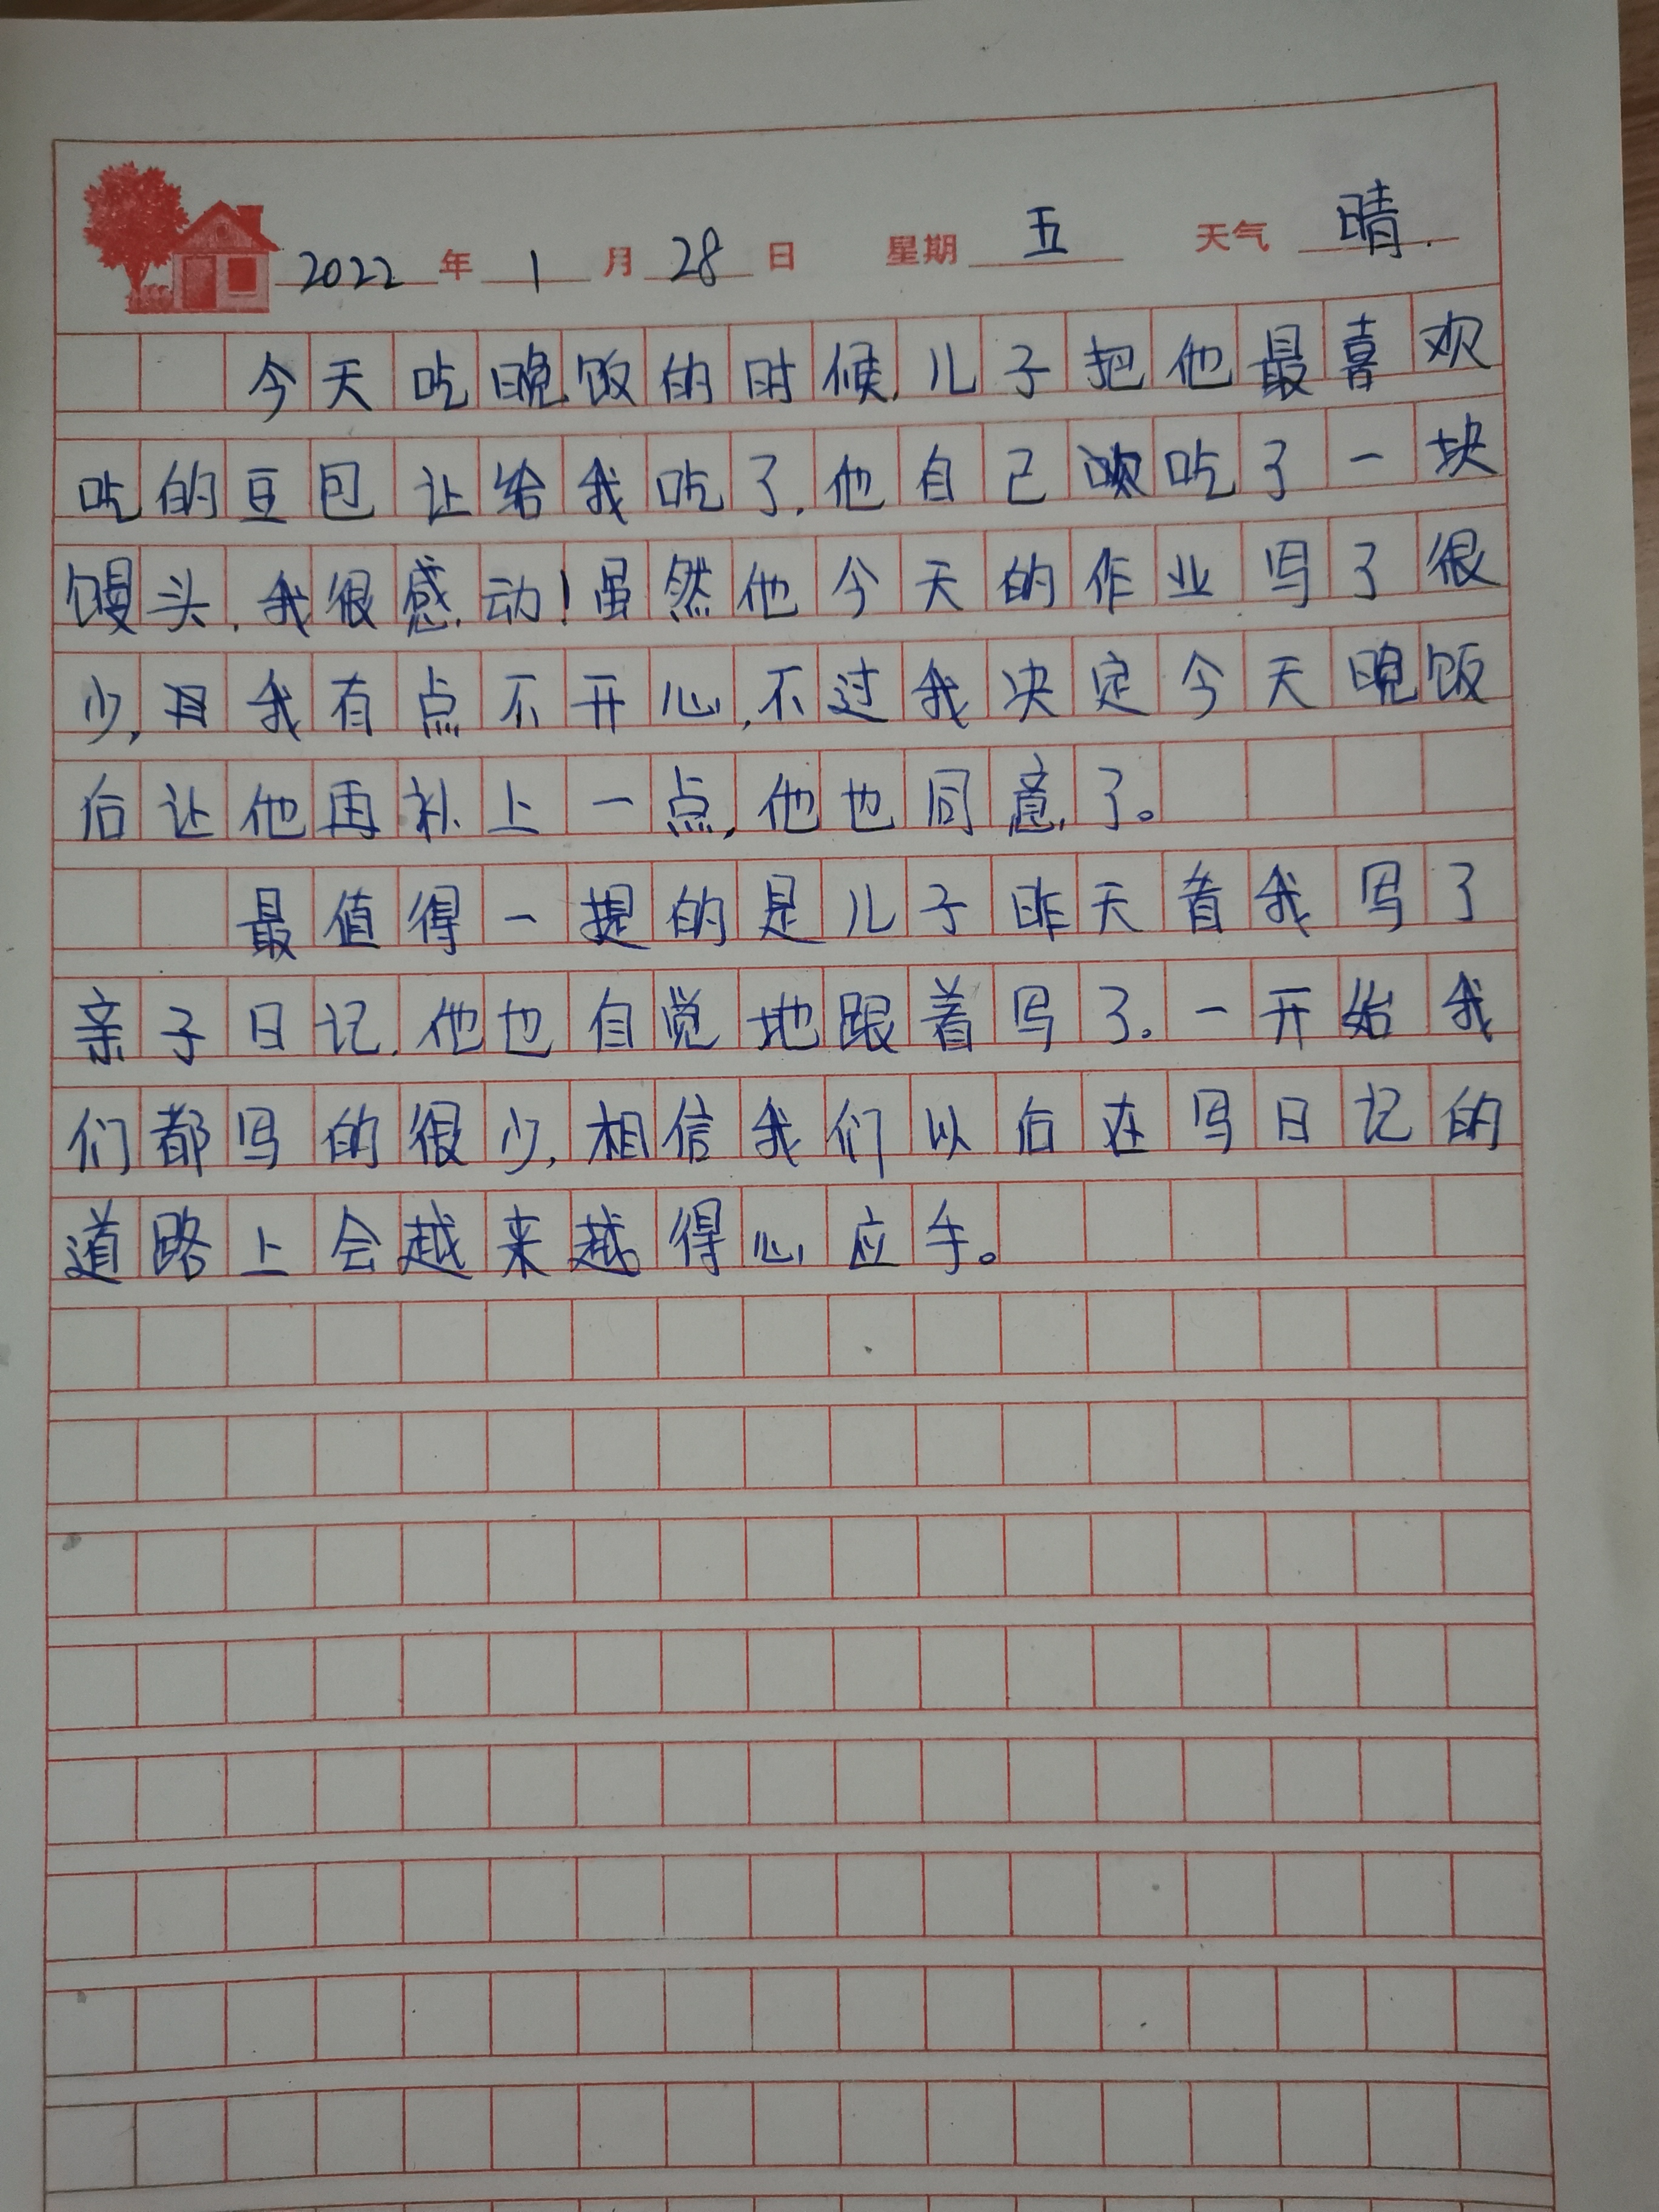 2022年1月28日 星期五 天气晴.
今天吃晚饭的时候,儿子把他最喜欢
吃的豆包让给我吃了,他自己吃了一块
馒头,我很感动!虽然他今天的作业写了很
少,我有点不开心,不过我决定今天晚饭
后让他再补上一点,他也同意了。
最值得一提的是儿子昨天看我写了
亲子日记,他也自觉地跟着写了。一开始我
们都写的很少,相信我们以后在写日记的
道路上会越来越得心应手。